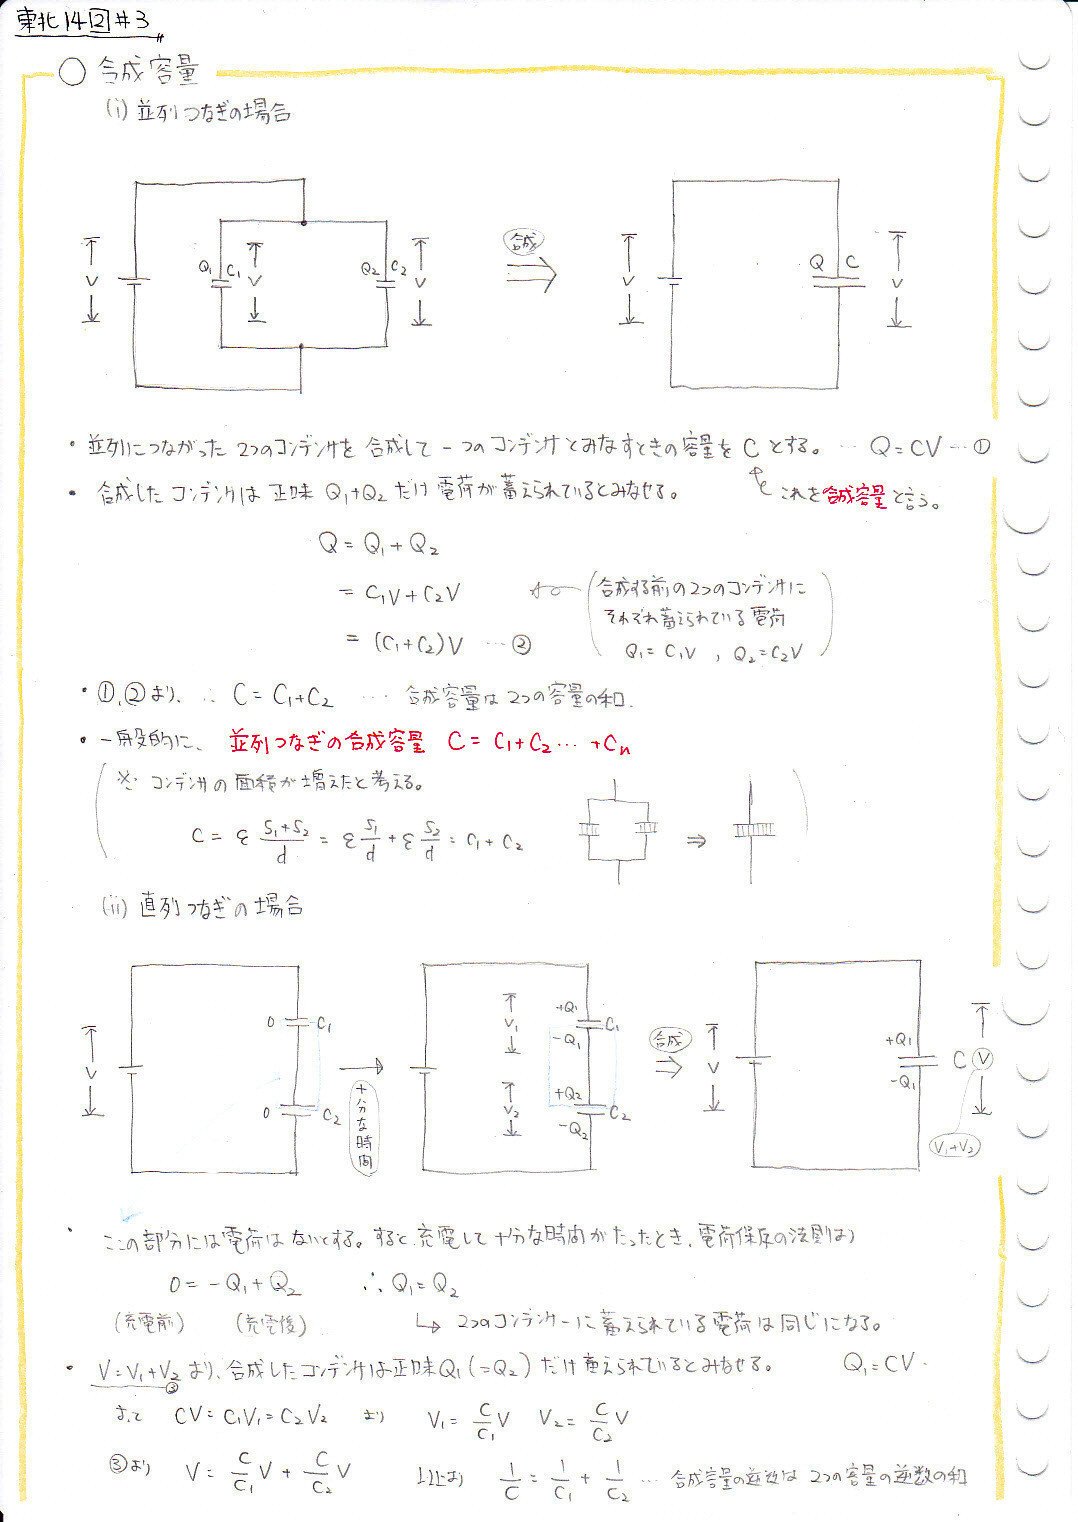 東北14 2 #3
○ 合成容量
(i) 並列つなぎの場合
V Q1 C1 V Q2 C2 V 合成 V Q C V
・並列につながった2つのコンデンサを合成して一つのコンデンサとみなすときの容量をCとする。… Q=CV … ①
・合成したコンデンサは正味Q1+Q2だけ電荷が蓄えられているとみなせる。 これを合成容量と言う。
Q = Q1 + Q2
= C1V + C2V (合成する前の2つのコンデンサに
それぞれ蓄えられている電荷
= (C1+C2)V … ②
Q1=C1V , Q2=C2V)
・①,②より, ∴ C = C1+C2 … 合成容量は2つの容量の和.
・一般的に、並列つなぎの合成容量 C = C1+C2 … +Cn
(※ コンデンサの面積が増えたと考える。
C = ε (S1+S2)/d = ε S1/d + ε S2/d = C1 + C2 ⇒ )
(ii) 直列つなぎの場合
V 0 C1 0 C2 → 十分な時間 V1 +Q1 -Q1 C1 V2 +Q2 -Q2 C2 合成 ⇒ V +Q1 -Q1 C V V1+V2
・ここの部分には電荷はないとする。すると、充電して十分な時間がたったとき、電荷保存の法則より
0 = -Q1 + Q2 ∴ Q1 = Q2
(充電前) (充電後) ↳ 2つのコンデンサーに蓄えられている電荷は同じになる。
・V=V1+V2 ③ より、合成したコンデンサは正味Q1(=Q2)だけ蓄えられているとみなせる。 Q1=CV.
よって CV = C1V1 = C2V2 より V1 = C/C1 V V2 = C/C2 V
③より V = C/C1 V + C/C2 V 以上より 1/C = 1/C1 + 1/C2 … 合成容量の逆数は2つの容量の逆数の和